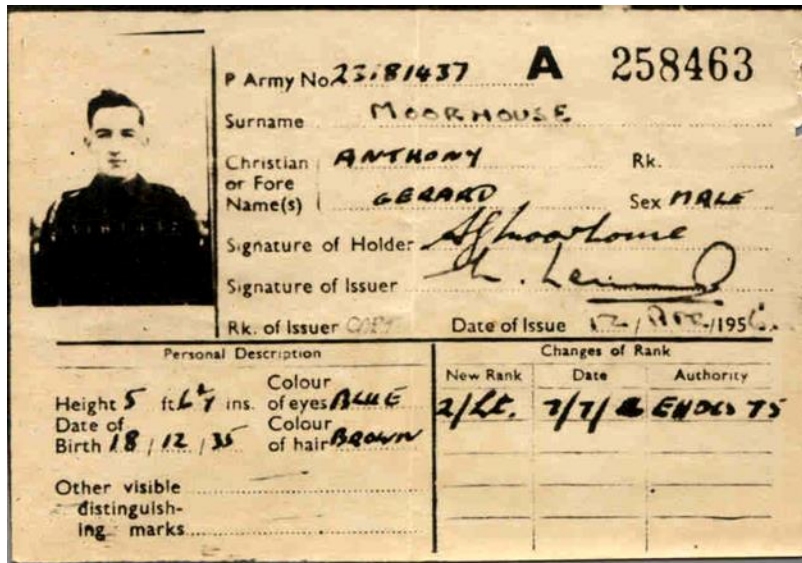 P Army No 23181437 A 258463
Surname MOORHOUSE
Christian or Fore Name(s) ANTHONY Rk.
GERARD Sex MALE
Signature of Holder AGMoorhouse
Signature of Issuer
Rk. of Issuer CAPT Date of Issue 12 / /1956.
Personal Description
Height 5 ft. ins. Colour of eyes BLUE
Date of Birth 18 / 12 / 35 Colour of hair BROWN
Other visible distinguishing marks
Changes of Rank
New Rank Date Authority
2/Lt. 7/7/ EHQLS 75